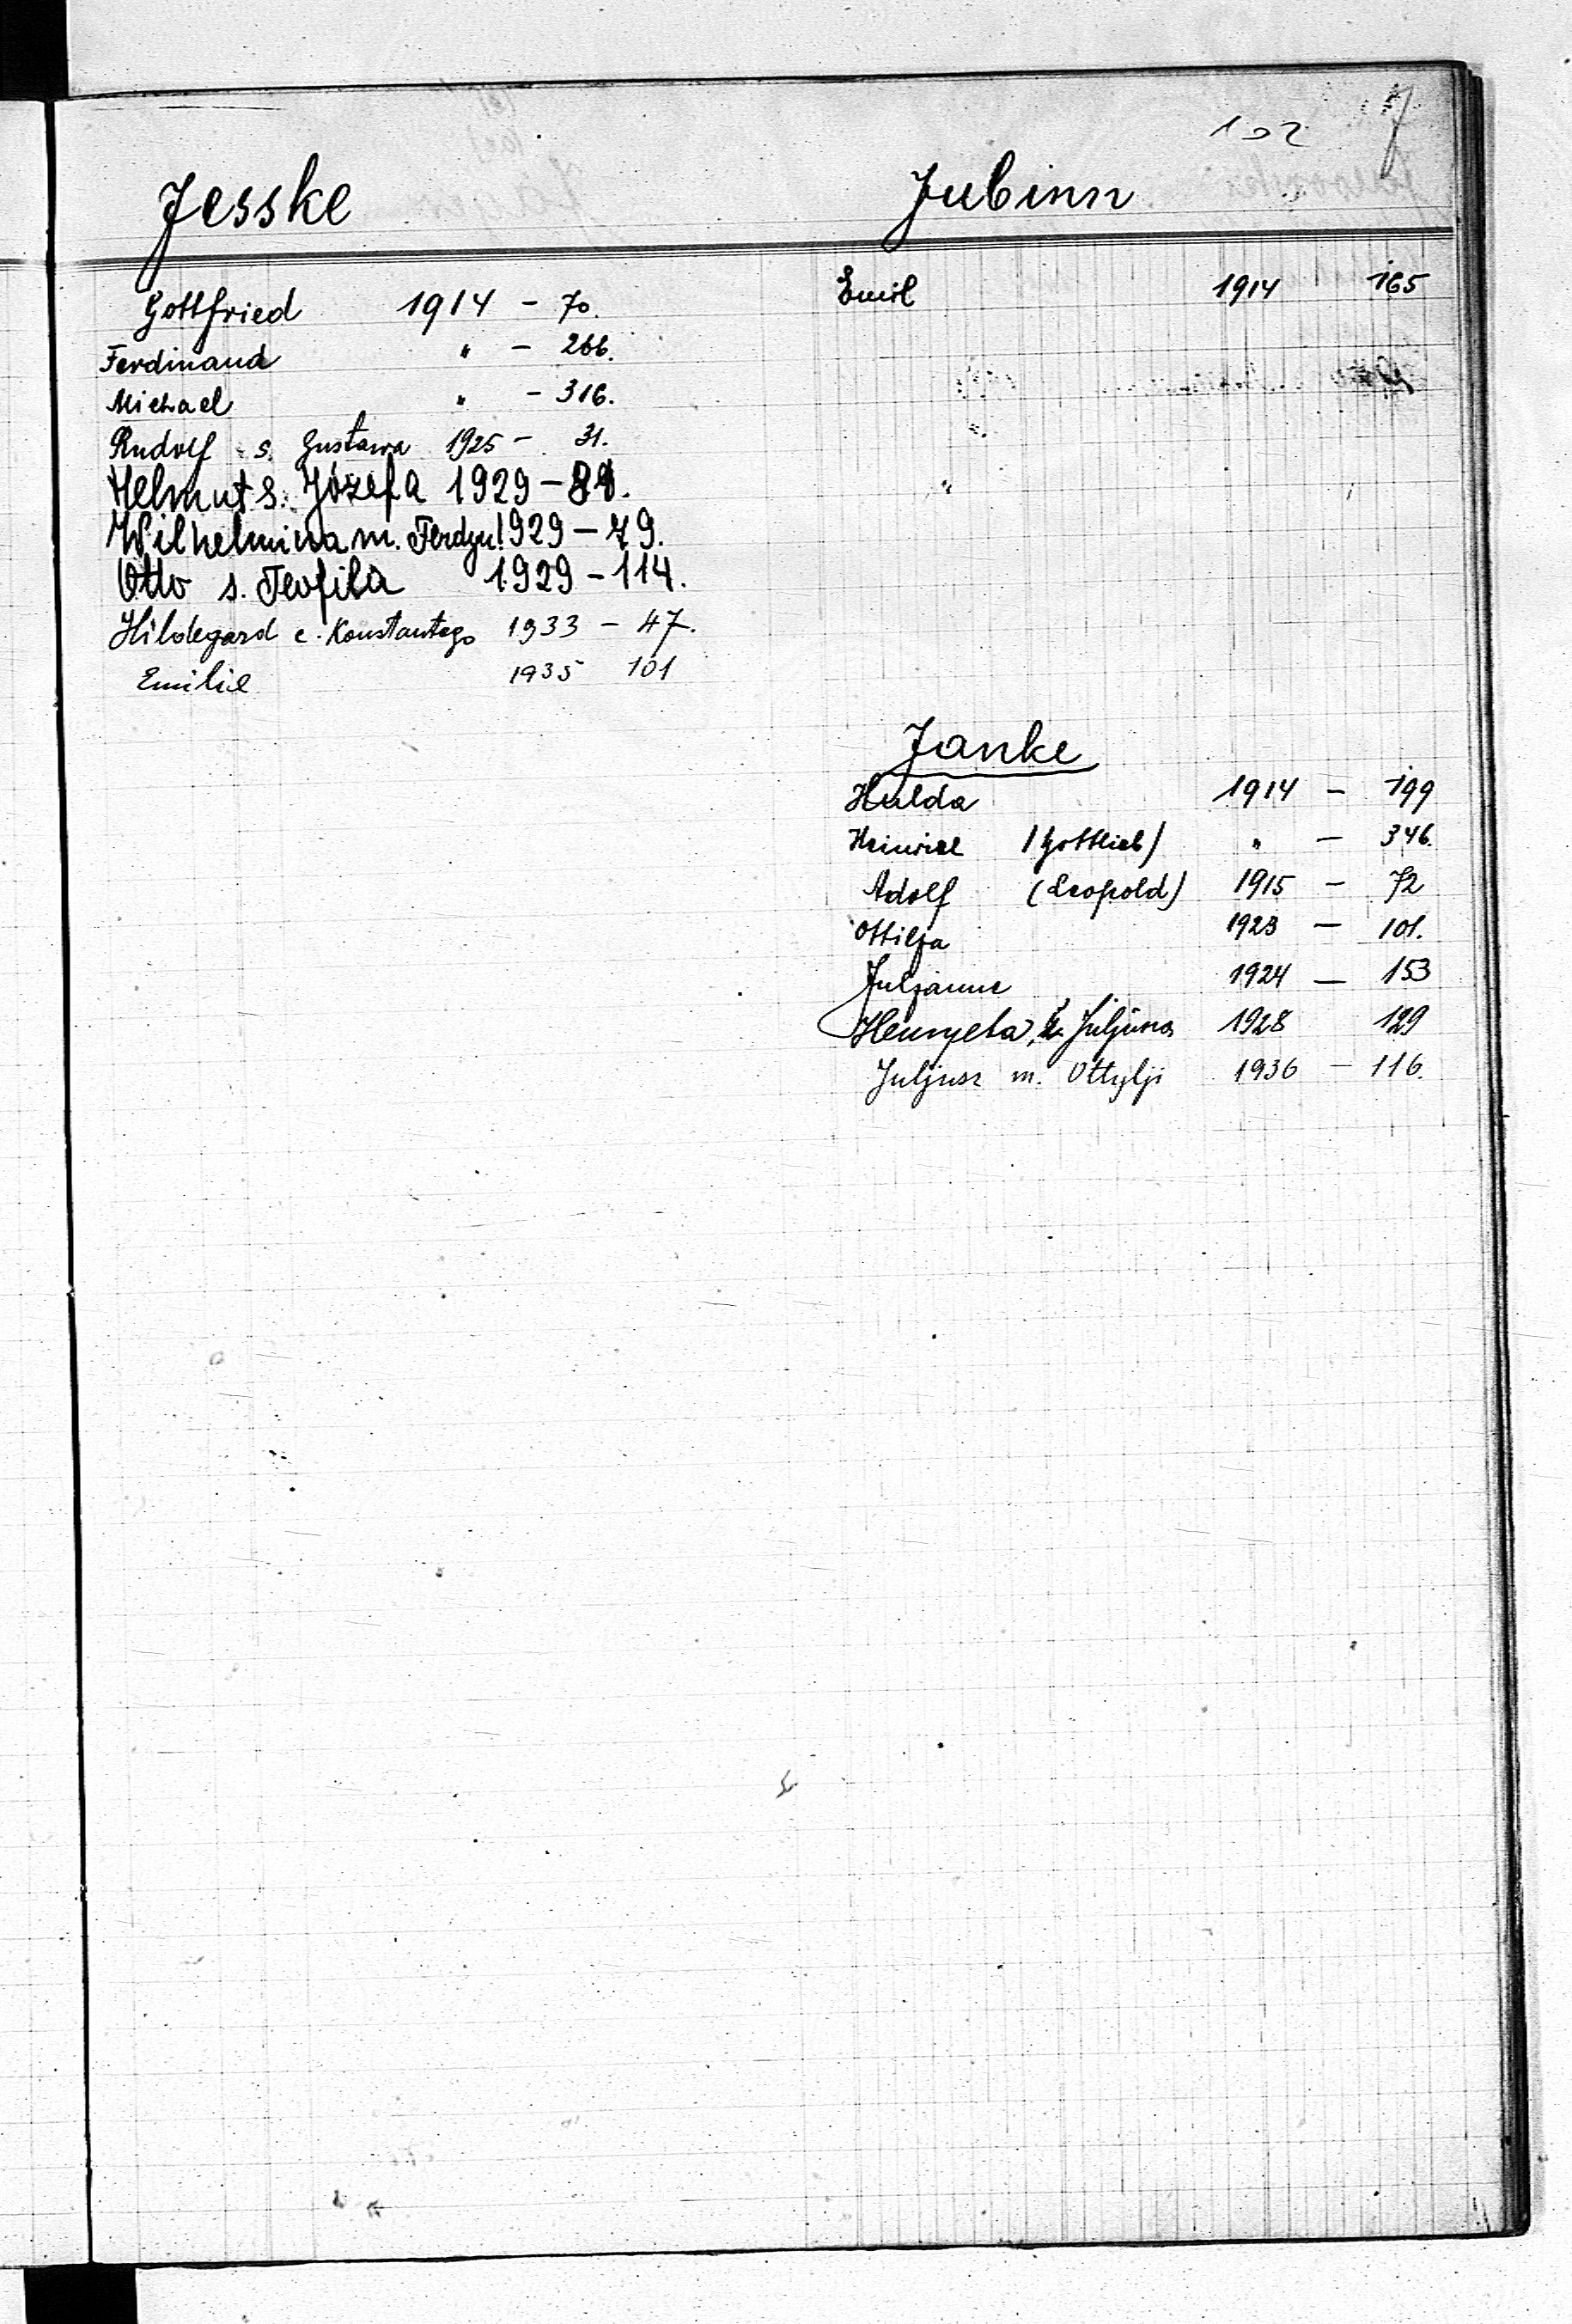 102 J
Jesske
Gottfried 1914 - 70.
Ferdinand " - 266.
Michael " - 316.
Rudolf s. Gustawa 1925 - 31.
Helmut s. Józefa 1929 -
Wilhelmina m. Ferdyn. 1929 - 79.
Otto s. Teofila 1929 - 114.
Hildegard c. Konstantego 1933 - 47.
Emilie 1935 101
Jubinn
Emil 1914 165
Janke
Hulda 1914 - 199
Heinrich (Gottlieb) " - 346.
Adolf (Leopold) 1915 - 72
Ottilja 1923 - 101.
Juljanne 1924 - 153
Henryeta, ż. Juljusa 1928 129
Juljusz m. Ottylji 1936 - 116.